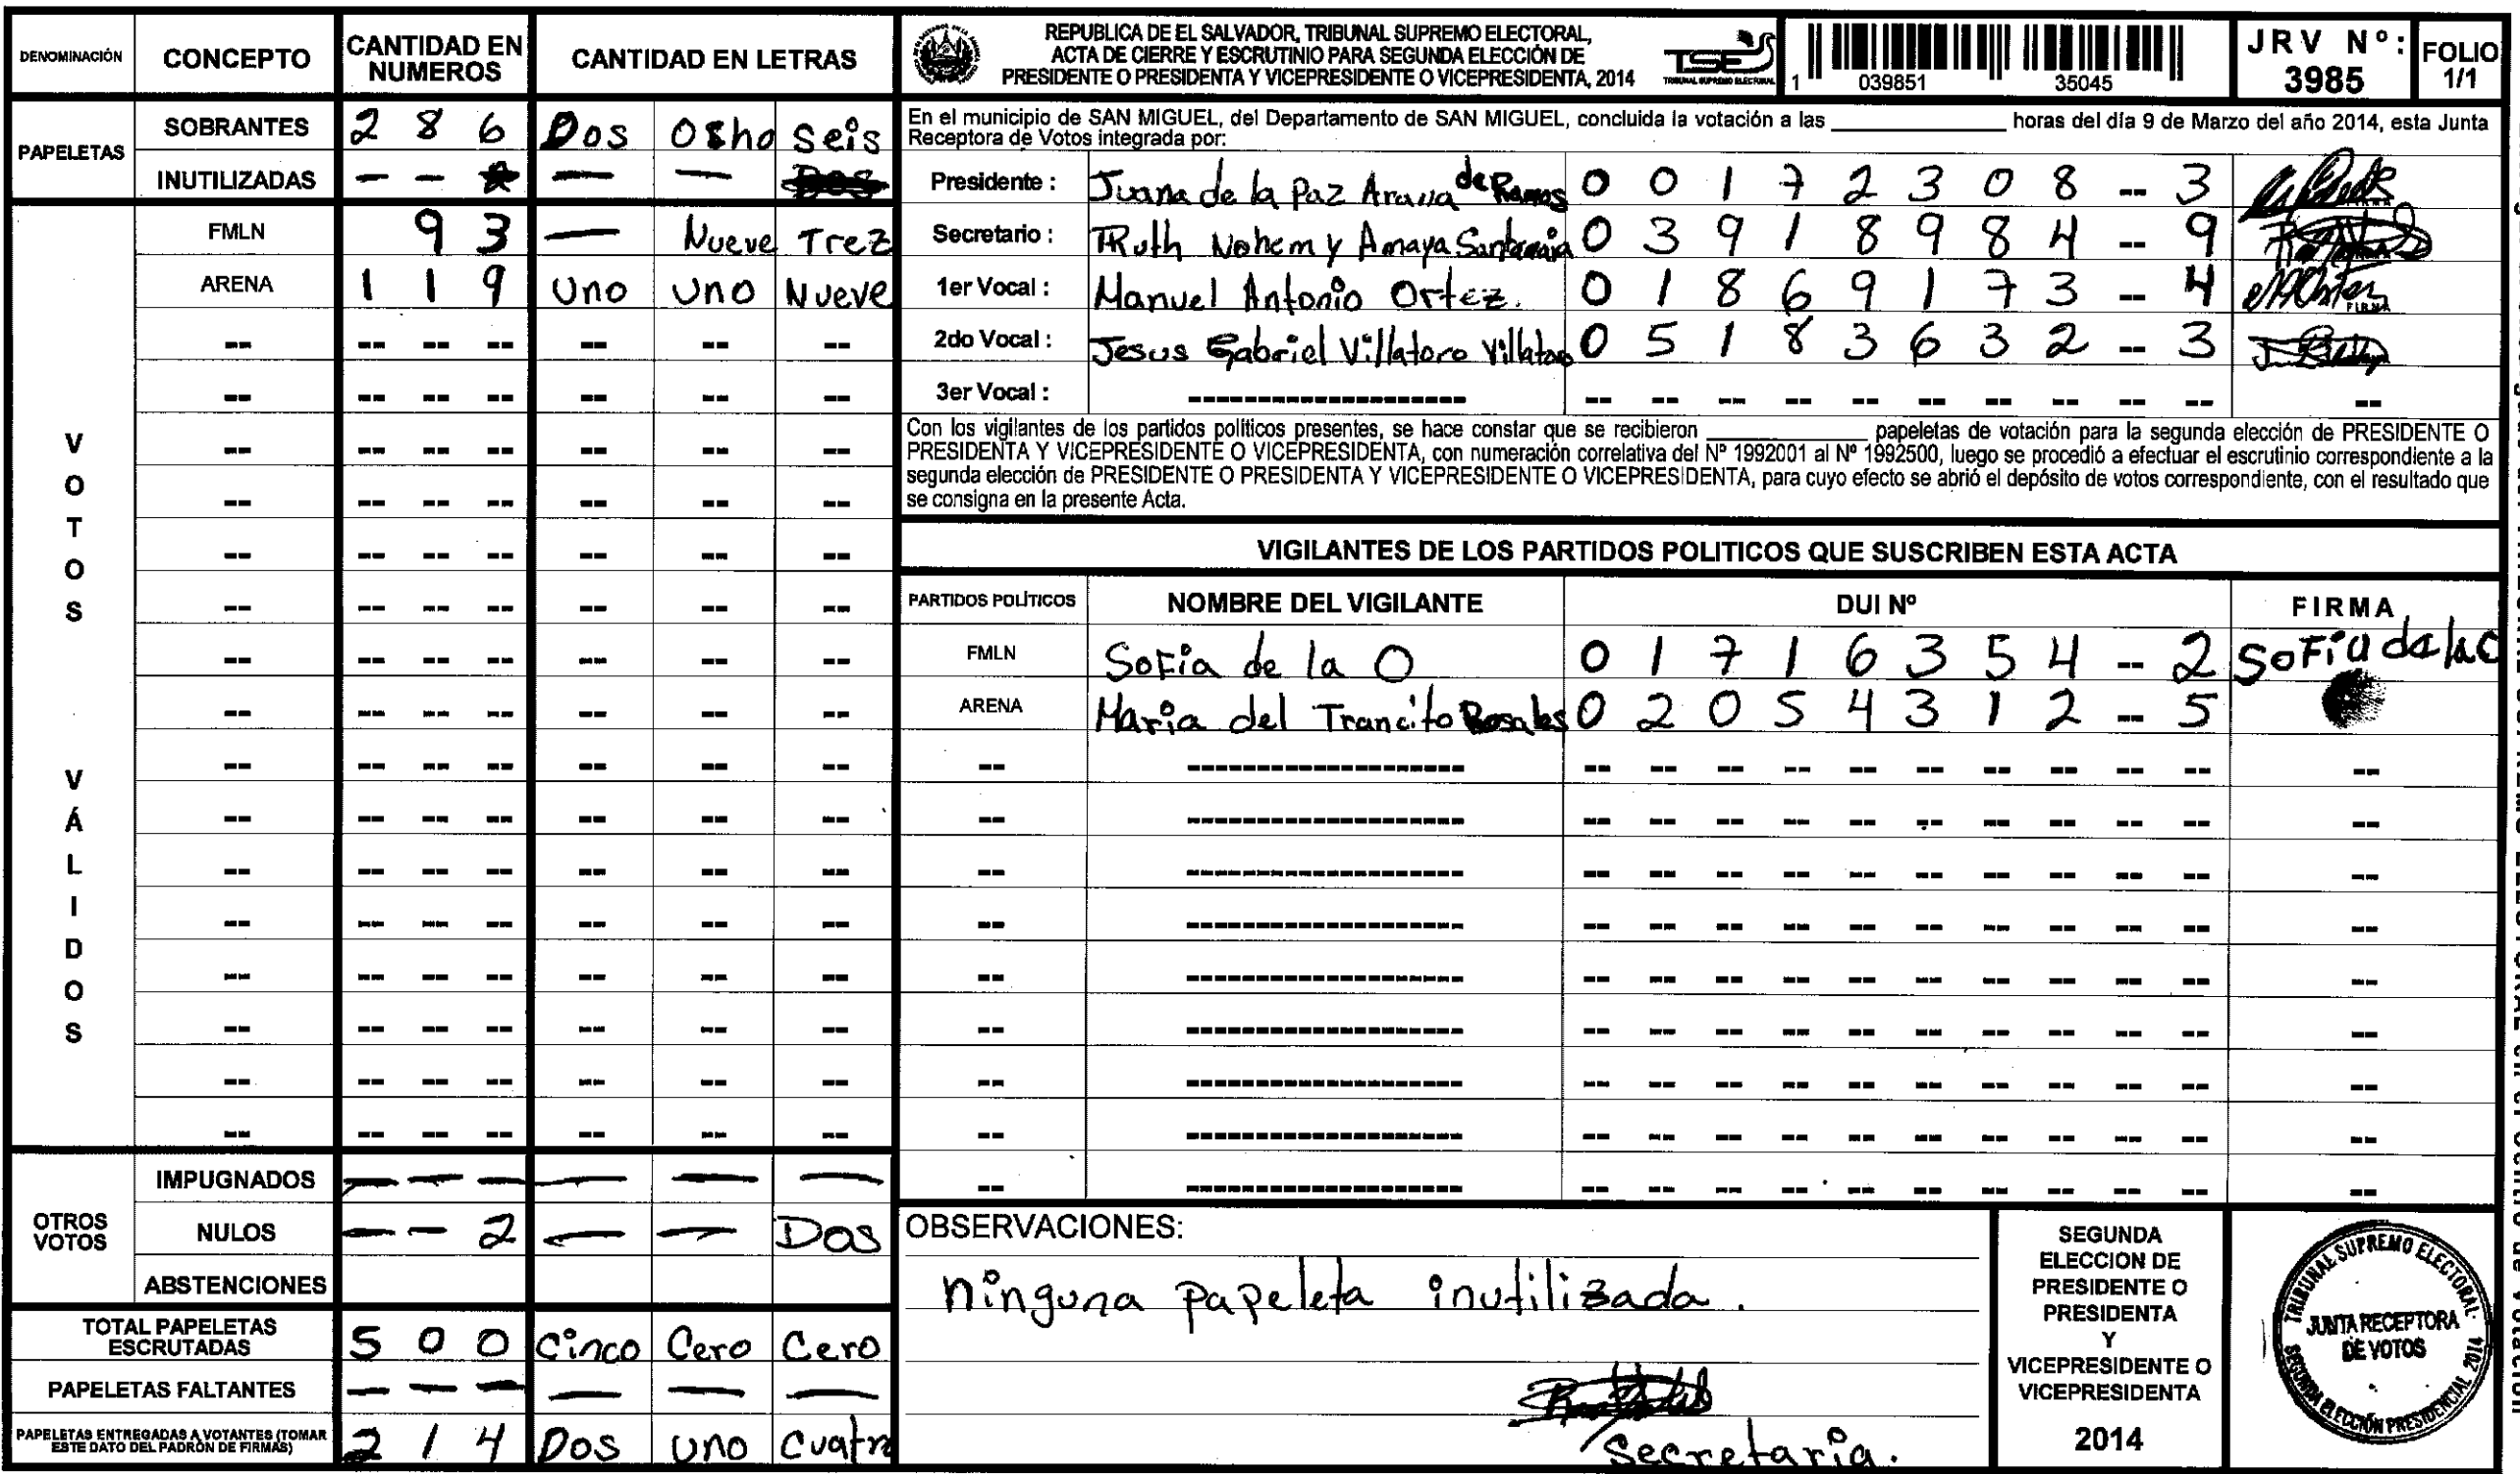 DENOMINACIÓN CONCEPTO CANTIDAD EN NUMEROS CANTIDAD EN LETRAS
PAPELETAS
SOBRANTES 2 8 6 Dos Osho Seis
INUTILIZADAS - - - -
VOTOS VÁLIDOS
FMLN 9 3 - Nueve Trez
ARENA 1 1 9 Uno Uno Nueve
OTROS VOTOS
IMPUGNADOS - - - - - -
NULOS - - 2 - - Dos
ABSTENCIONES
TOTAL PAPELETAS ESCRUTADAS 5 0 0 Cinco Cero Cero
PAPELETAS FALTANTES - - - - - -
PAPELETAS ENTREGADAS A VOTANTES (TOMAR ESTE DATO DEL PADRÓN DE FIRMAS) 2 1 4 Dos Uno Cuatro
REPUBLICA DE EL SALVADOR, TRIBUNAL SUPREMO ELECTORAL,
ACTA DE CIERRE Y ESCRUTINIO PARA SEGUNDA ELECCIÓN DE
PRESIDENTE O PRESIDENTA Y VICEPRESIDENTE O VICEPRESIDENTA, 2014
TSE
TRIBUNAL SUPREMO ELECTORAL
1 039851 35045
JRV Nº: 3985
FOLIO 1/1
En el municipio de SAN MIGUEL, del Departamento de SAN MIGUEL, concluida la votación a las ____________ horas del día 9 de Marzo del año 2014, esta Junta
Receptora de Votos integrada por:
Presidente : Juana de la Paz de Ramos 0 0 1 7 2 3 0 8 -- 3
Secretario : Ruth Nohemy Amaya 0 3 9 1 8 9 8 4 -- 9
1er Vocal : Manuel Antonio Ortez. 0 1 8 6 9 1 7 3 -- 4 FIRMA
2do Vocal : Jesus Gabriel Villatoro Villatoro 0 5 1 8 3 6 3 2 -- 3
3er Vocal : --
Con los vigilantes de los partidos políticos presentes, se hace constar que se recibieron ____________ papeletas de votación para la segunda elección de PRESIDENTE O
PRESIDENTA Y VICEPRESIDENTE O VICEPRESIDENTA, con numeración correlativa del Nº 1992001 al Nº 1992500, luego se procedió a efectuar el escrutinio correspondiente a la
segunda elección de PRESIDENTE O PRESIDENTA Y VICEPRESIDENTE O VICEPRESIDENTA, para cuyo efecto se abrió el depósito de votos correspondiente, con el resultado que
se consigna en la presente Acta.
VIGILANTES DE LOS PARTIDOS POLITICOS QUE SUSCRIBEN ESTA ACTA
PARTIDOS POLÍTICOS NOMBRE DEL VIGILANTE DUI Nº FIRMA
FMLN Sofia de la O 0 1 7 1 6 3 5 4 -- 2 Sofia de la O
ARENA Maria del Trancito Rosales 0 2 0 5 4 3 1 2 -- 5
OBSERVACIONES:
ninguna papeleta inutilizada.
Secretaria.
SEGUNDA
ELECCION DE
PRESIDENTE O
PRESIDENTA
Y
VICEPRESIDENTE O
VICEPRESIDENTA
2014
TRIBUNAL SUPREMO ELECTORAL
JUNTA RECEPTORA
DE VOTOS
SEGUNDA ELECCIÓN PRESIDENCIAL 2014